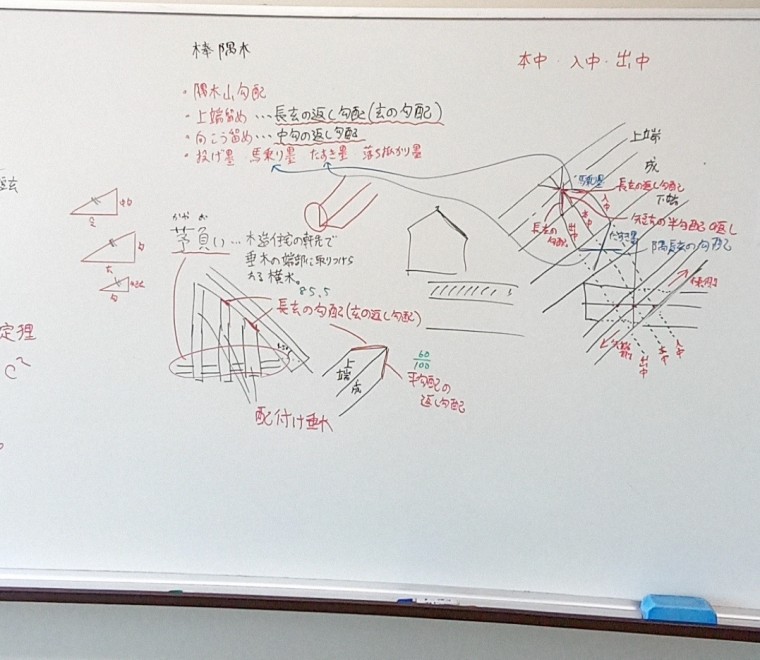 棒隅木
本中・入中・出中
・隅木山勾配
・上端留め…長玄の返し勾配(玄の勾配)
・向こう留め…中勾の返し勾配
・投げ墨 馬乗り墨 たすき墨 落ち掛かり墨
かや お
茅負い…木造住宅の軒先で
垂木の端部に取りつけら
れる横木。
85.5
長玄の勾配(玄の返し勾配)
上端
成
60
100
平勾配の
返し勾配
配付け垂木
上端
成
下端
馬乗墨
長玄の返し勾配
入中
本中
出中
長玄の
勾配
たすき墨
短玄の半勾配の返し
隅長玄の勾配
出中
本中
入中
定理
c²